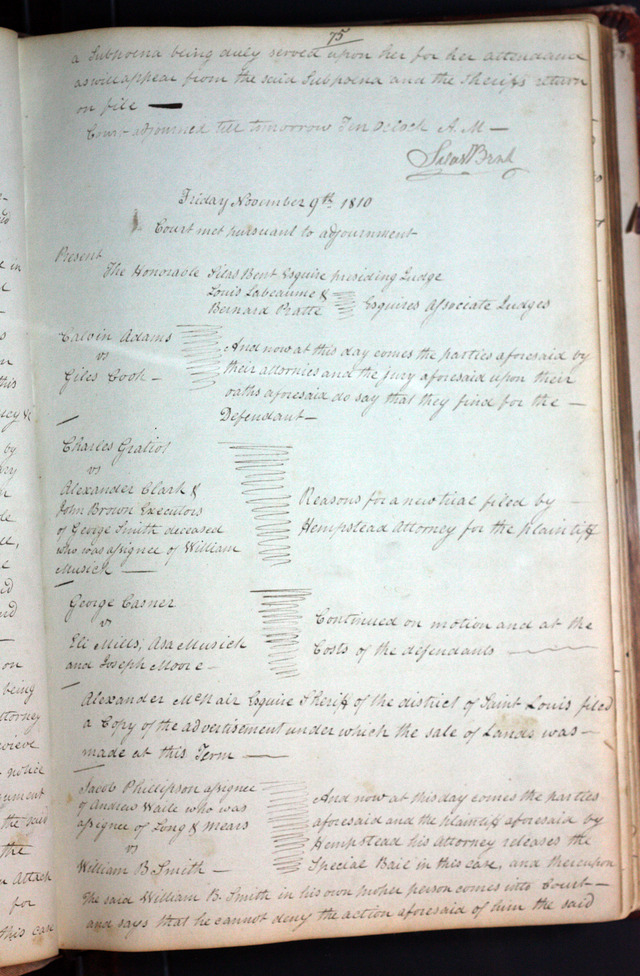 75
a Subpoena being duly served upon her for her attendance
as will appear from the said Subpoena and the Sheriffs return
on file —
Court adjourned till tomorrow Ten Oclock A.M —
Silas Bent
Friday November 9th 1810
Court met pursuant to adjournment
Present
The Honorable Silas Bent Esquire presiding Judge
Louis Labeaume &
Bernard Pratte
Esquires Associate Judges
Calvin Adams
vs
Giles Cook —
And now at this day comes the parties aforesaid by
their attornies and the jury aforesaid upon their
oaths aforesaid do say that they find for the —
Defendant —
Charles Gratiot
vs
Alexander Clark &
John Brown Executors
of George Smith deceased
who was assignee of William
Musick —
Reasons for a new trial filed by —
Hempstead Attorney for the plaintiff
George Casner
vs
Eli Mills, Asa Musick
and Joseph Moore —
Continued on motion and at the
Costs of the defendants —
Alexander McNair Esquire Sheriff of the district of Saint Louis filed
a Copy of the advertisement under which the sale of Lands was —
made at this Term —
Jacob Phillipson assignee
of Andrew Waile who was
assignee of Long & Mears
vs
William B Smith —
And now at this day comes the parties
aforesaid and the Plaintiff aforesaid by
Hempstead his Attorney releases the
Special Bail in this case, and thereupon
The said William B. Smith in his own proper person comes into Court —
and says that he cannot deny the action aforesaid of him the said